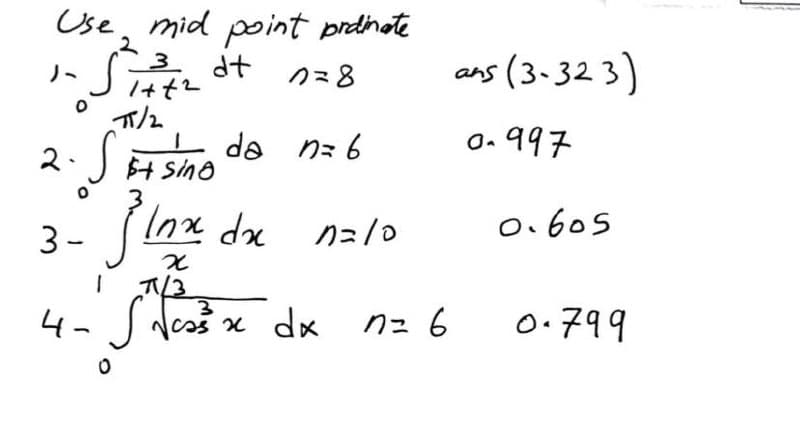 Use mid point prdinate
1- ∫₀² 3/(1+t²) dt n=8 ans (3.323)
2. ∫₀^(π/2) 1/(1+ sinθ) dθ n=6 0.997
3- ∫₁³ lnx/x dx n=10 0.605
4- ∫₀^(π/3) √(cos³ x) dx n=6 0.799